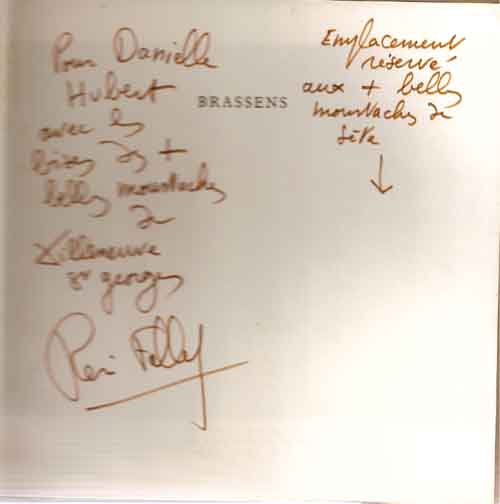 Pour Danielle
Hubert
avec les
bises des +
belles moustaches
de
Villeneuve
St georges
René Fallet
BRASSENS
Emplacement
réservé
aux + belles
moustaches de
Sète
↓